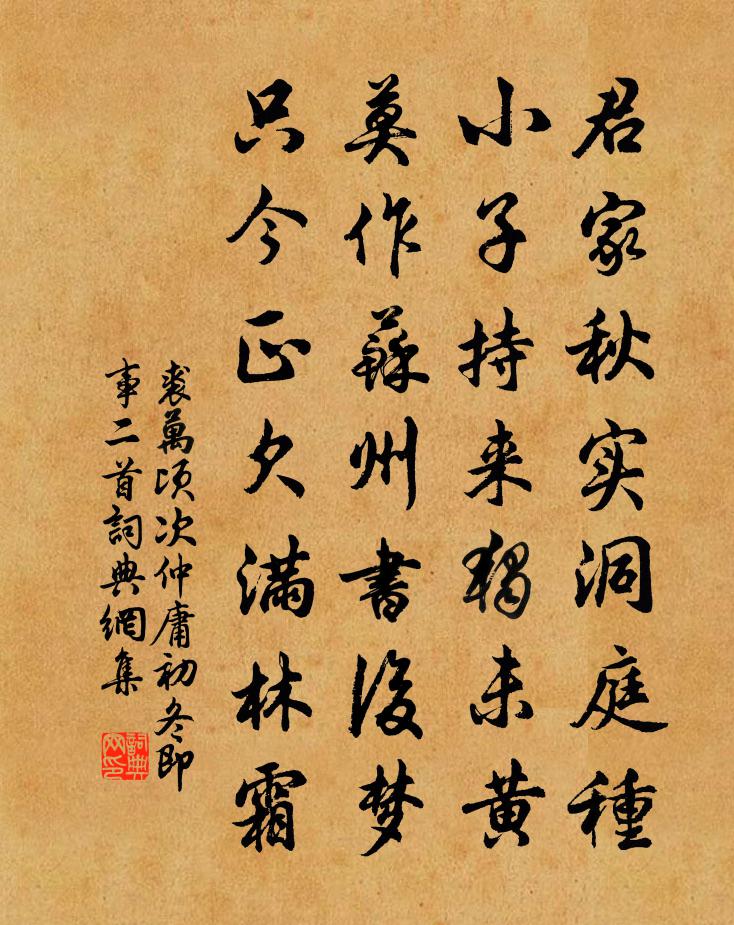 君家秋实洞庭種
小子持来獨未黄
莫作蘇州書後梦
只今正欠满林霜
裘萬頃次仲庸初冬即
事二首詞典網集
詞典
网印